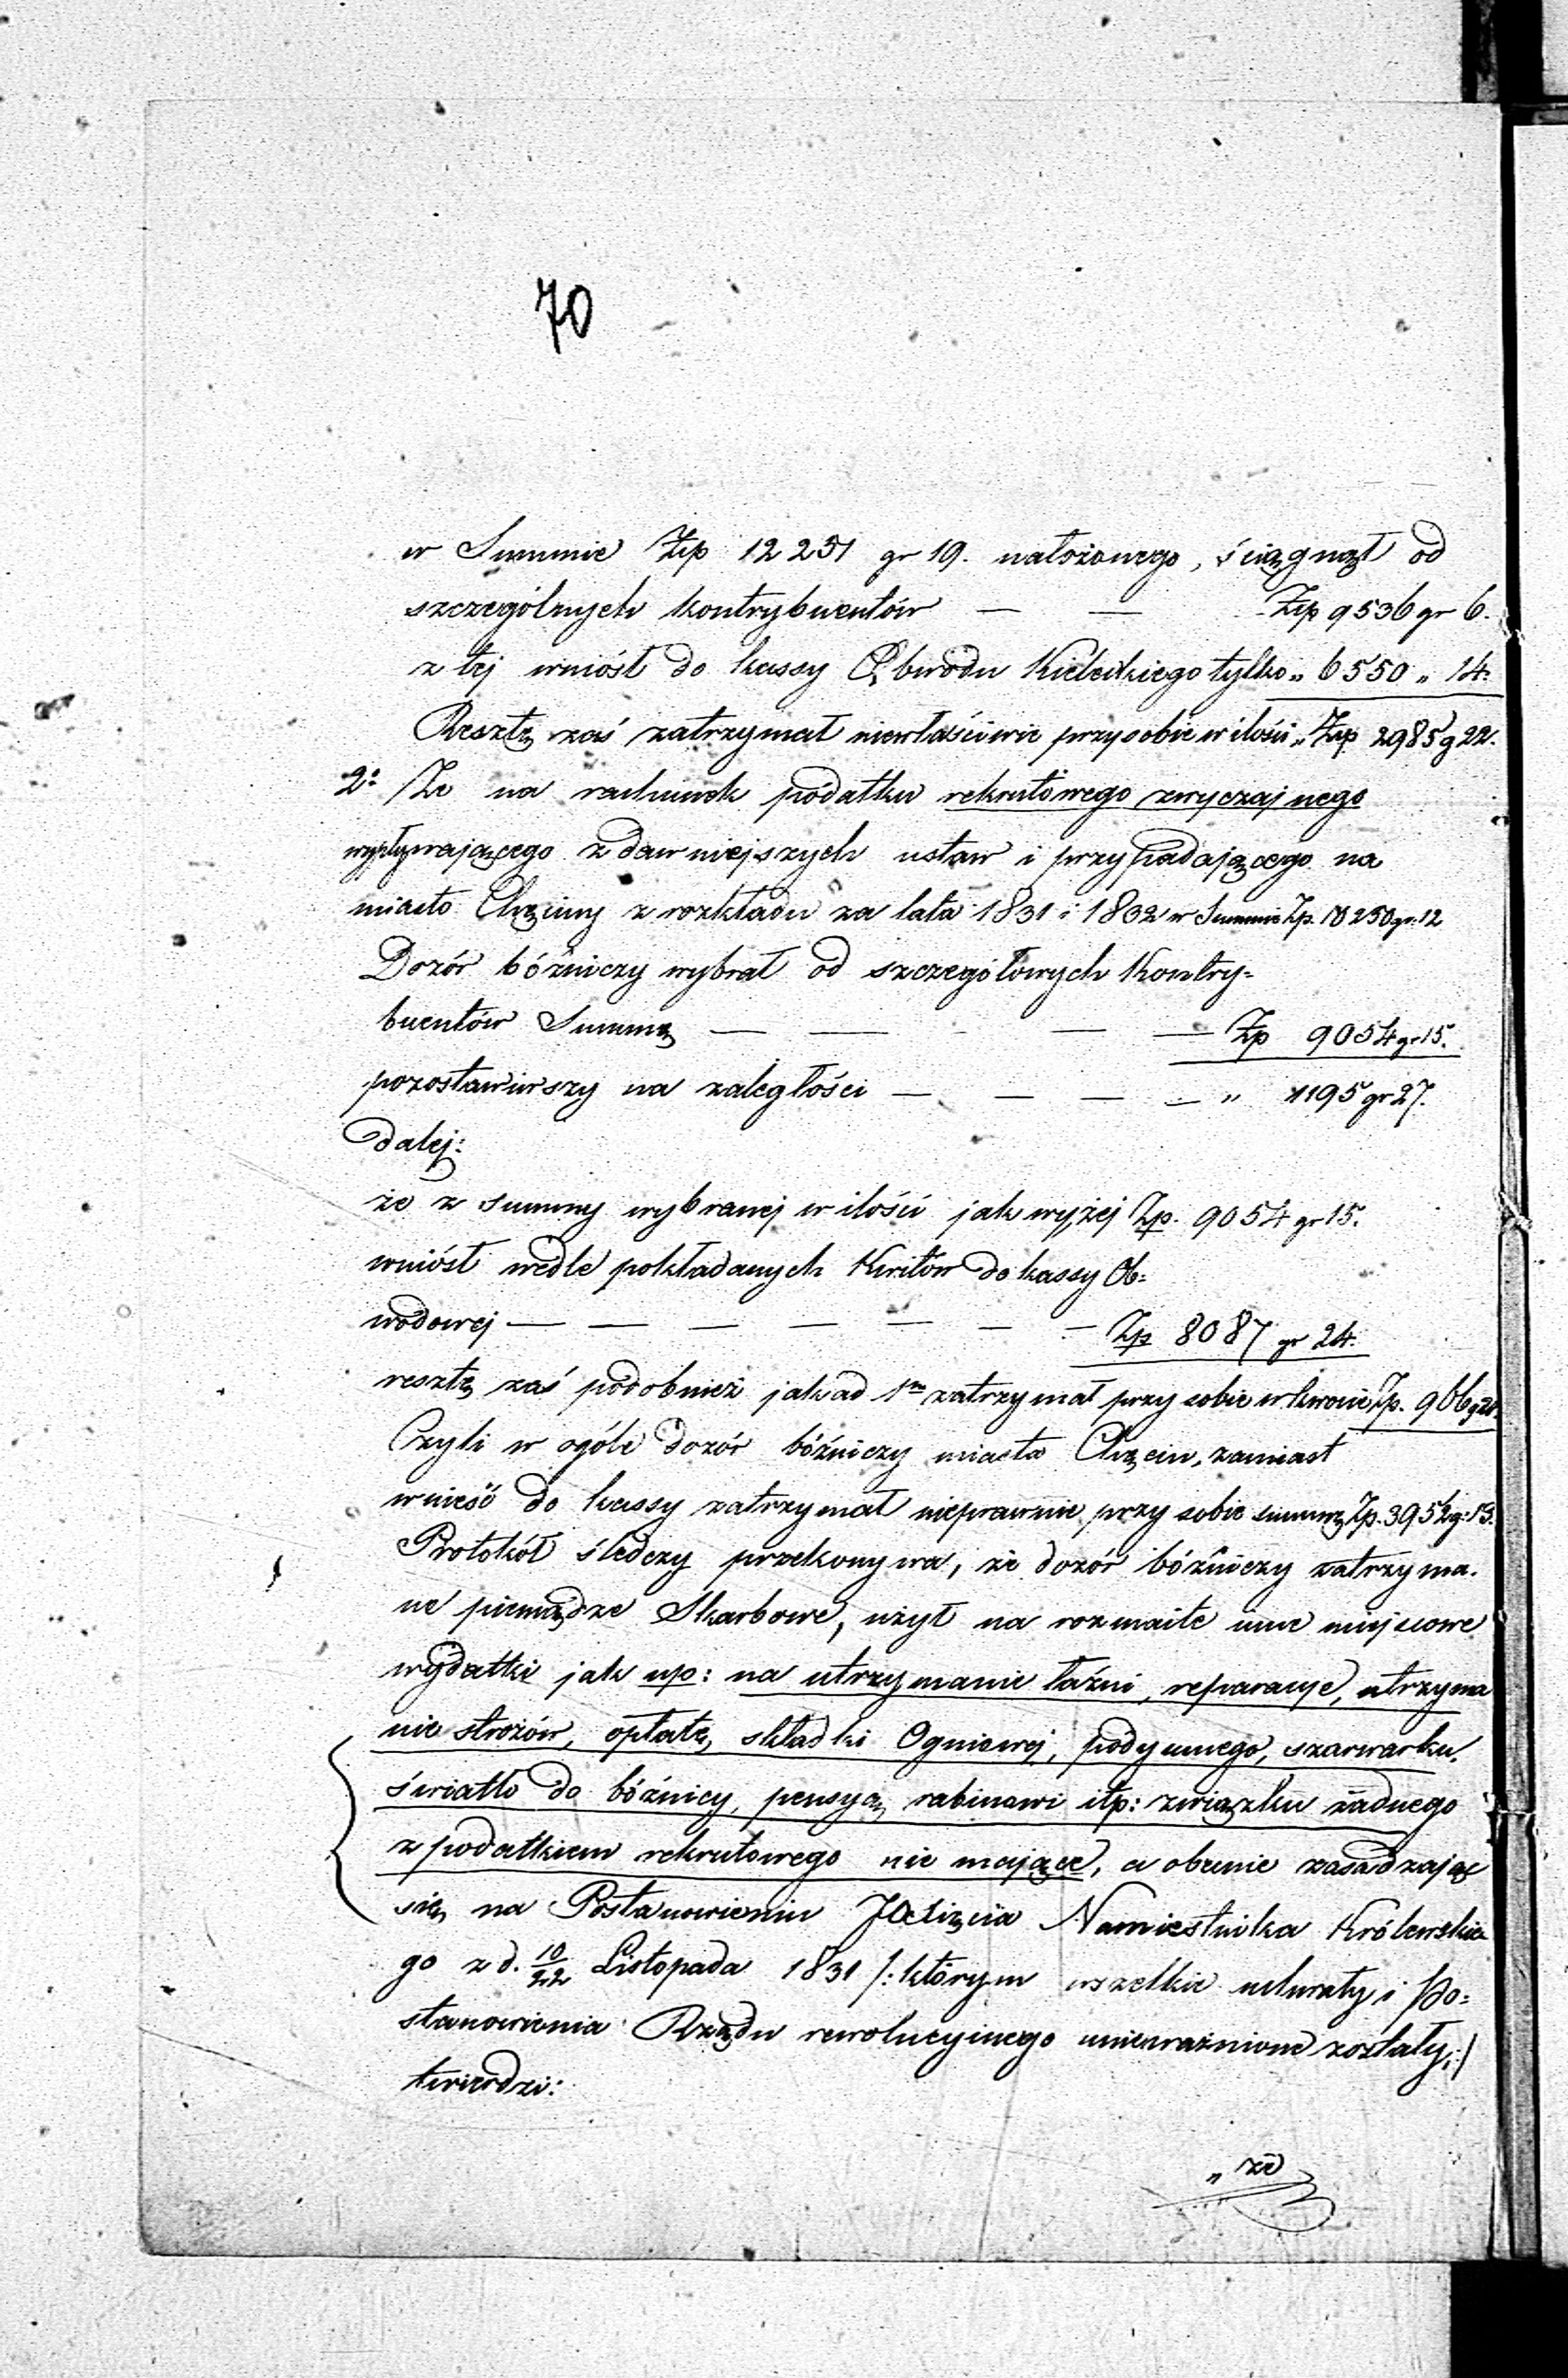 70
w Summie Złp 12251 gr 19. nałożonego, ściągnął od
szczególnych kontrybuentów — — Złp 9536 gr 6.
z tej wniósł do kassy Obwodu Kieleckiego tylko „ 6550 „ 14.
Resztę zaś zatrzymał niewłaściwie przy sobie w ilości „ Złp 2985 g 22.
2o Że na rachunek podatku rekrutowego zwyczajnego
wypływającego z dawniejszych ustaw i przypadającego na
miasto Chęciny z rozkładu za lata 1831 i 1832 w Summie Zp. 10250 gr. 12
Dozór bóźniczy wybrał od szczegółowych Kontry=
buentów Summę — — — — Zp 9054 gr 15.
pozostawiwszy na zaległości — — — — „ 1195 gr 27.
dalej:
że z summy wybranej w ilości jak wyżej Zp. 9054 gr 15.
wniósł wedle pokładanych Kwitów do kassy Ob=
wodowej — — — — — — — Zp 8087 gr 24.
resztę zaś podobnież jak ad 1m zatrzymał przy sobie w kwocie Zp. 966 g 21.
Czyli w ogóle dozór bóźniczy miasta Chęcin, zamiast
wnieść do kassy zatrzymał nieprawnie przy sobie summę Zp. 3952 g: 13.
Protokół śledczy przekonywa, że dozór bóźniczy zatrzyma-
ne pieniądze Skarbowe, użył na rozmaite inne miejscowe
wydatki jak np: na utrzymanie łaźni, reparacje, utrzyma
nie stróżów, opłatę składki Ogniowej, podymnego, szarwarku,
światło do bóźnicy, pensyą rabinowi itp: związku żadnego
z podatkiem rekrutowego nie mające, a obecnie zasadzając
się na Postanowieniu JO Xięcia Namiestnika Królewskie
go z d. 10/22 Listopada 1831 /: którym wszelkie uchwały i Po=
stanowienia Rządu rewolucyjnego unieważnione zostały, :/
twierdzi:
„ że